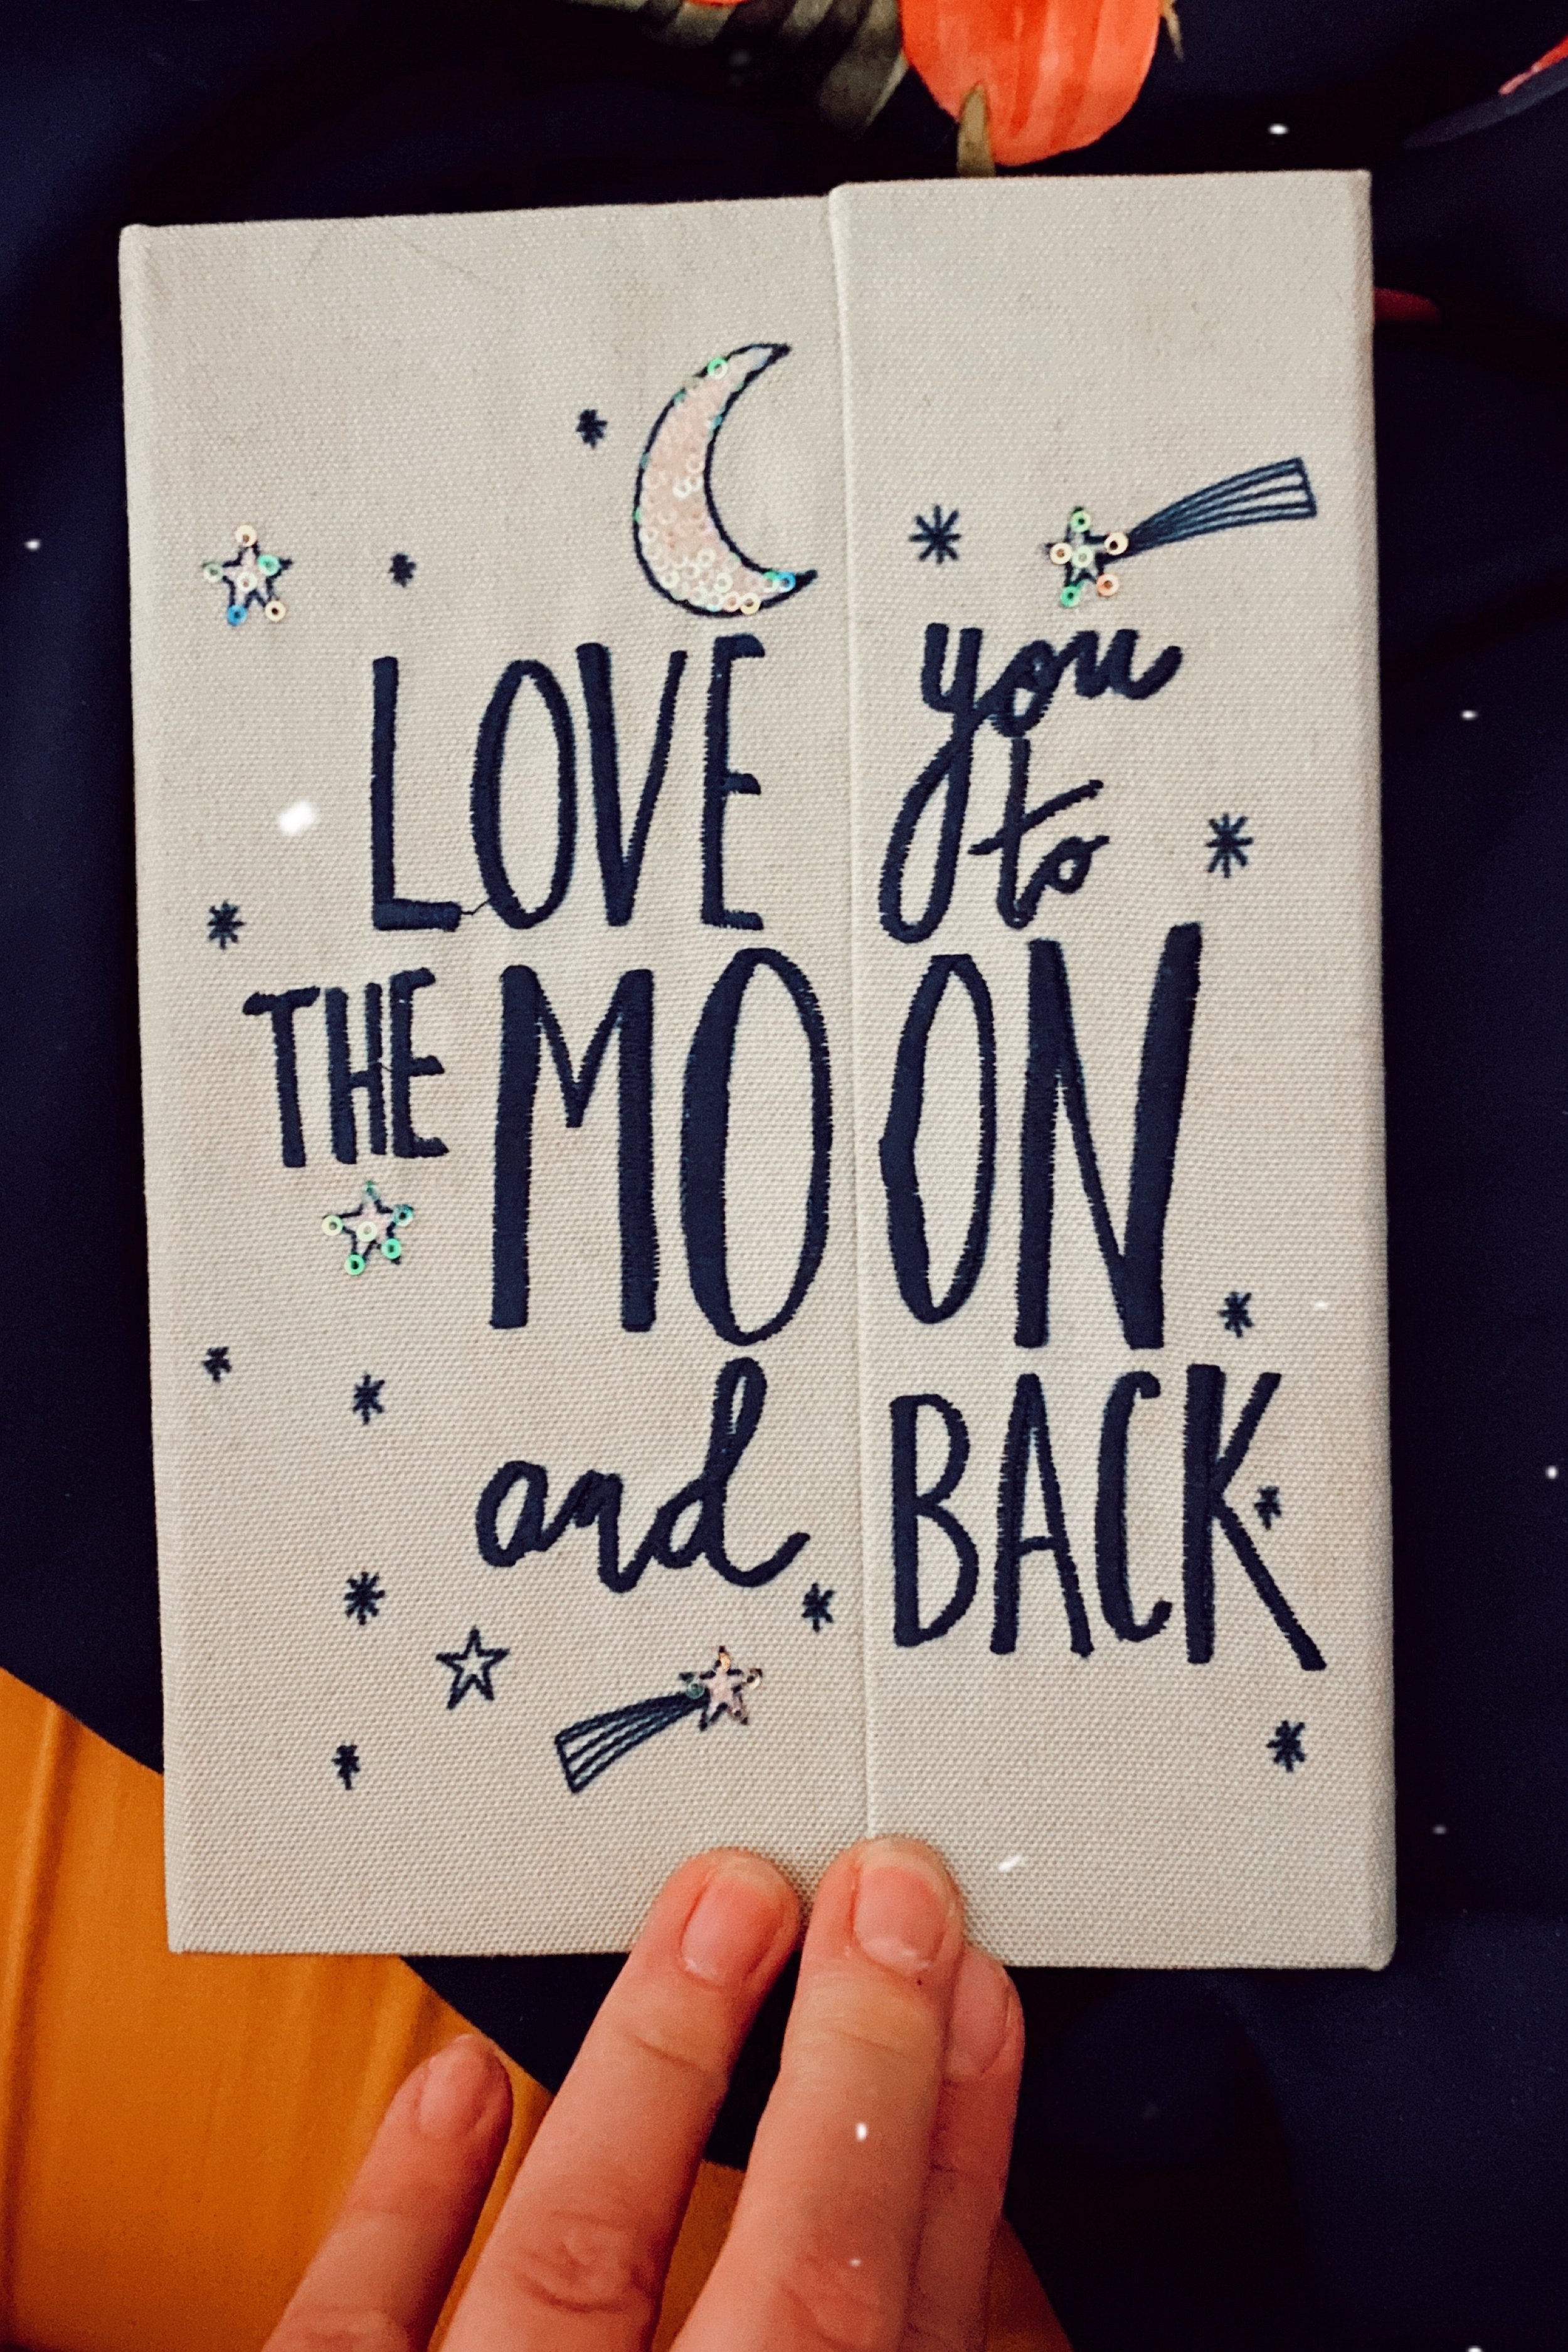 LOVE you
to
THE MOON
and BACK